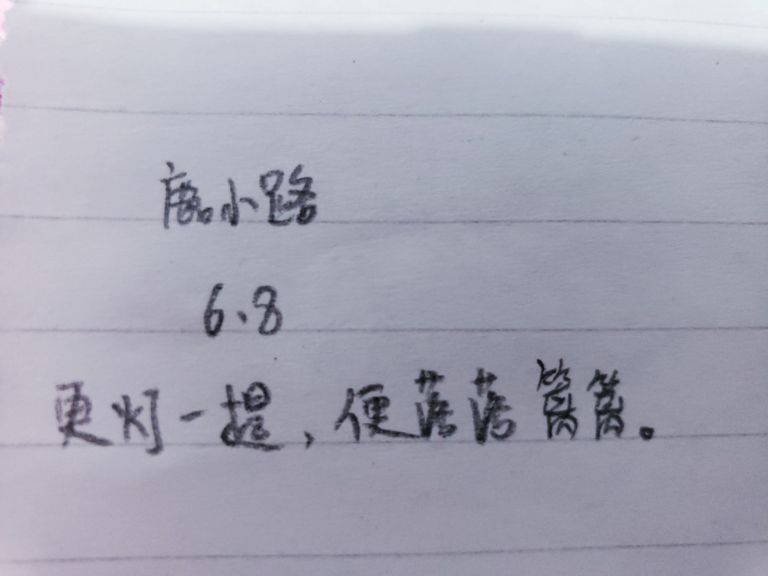 鹿小路
6、8
更灯一提，便落落篱篱。